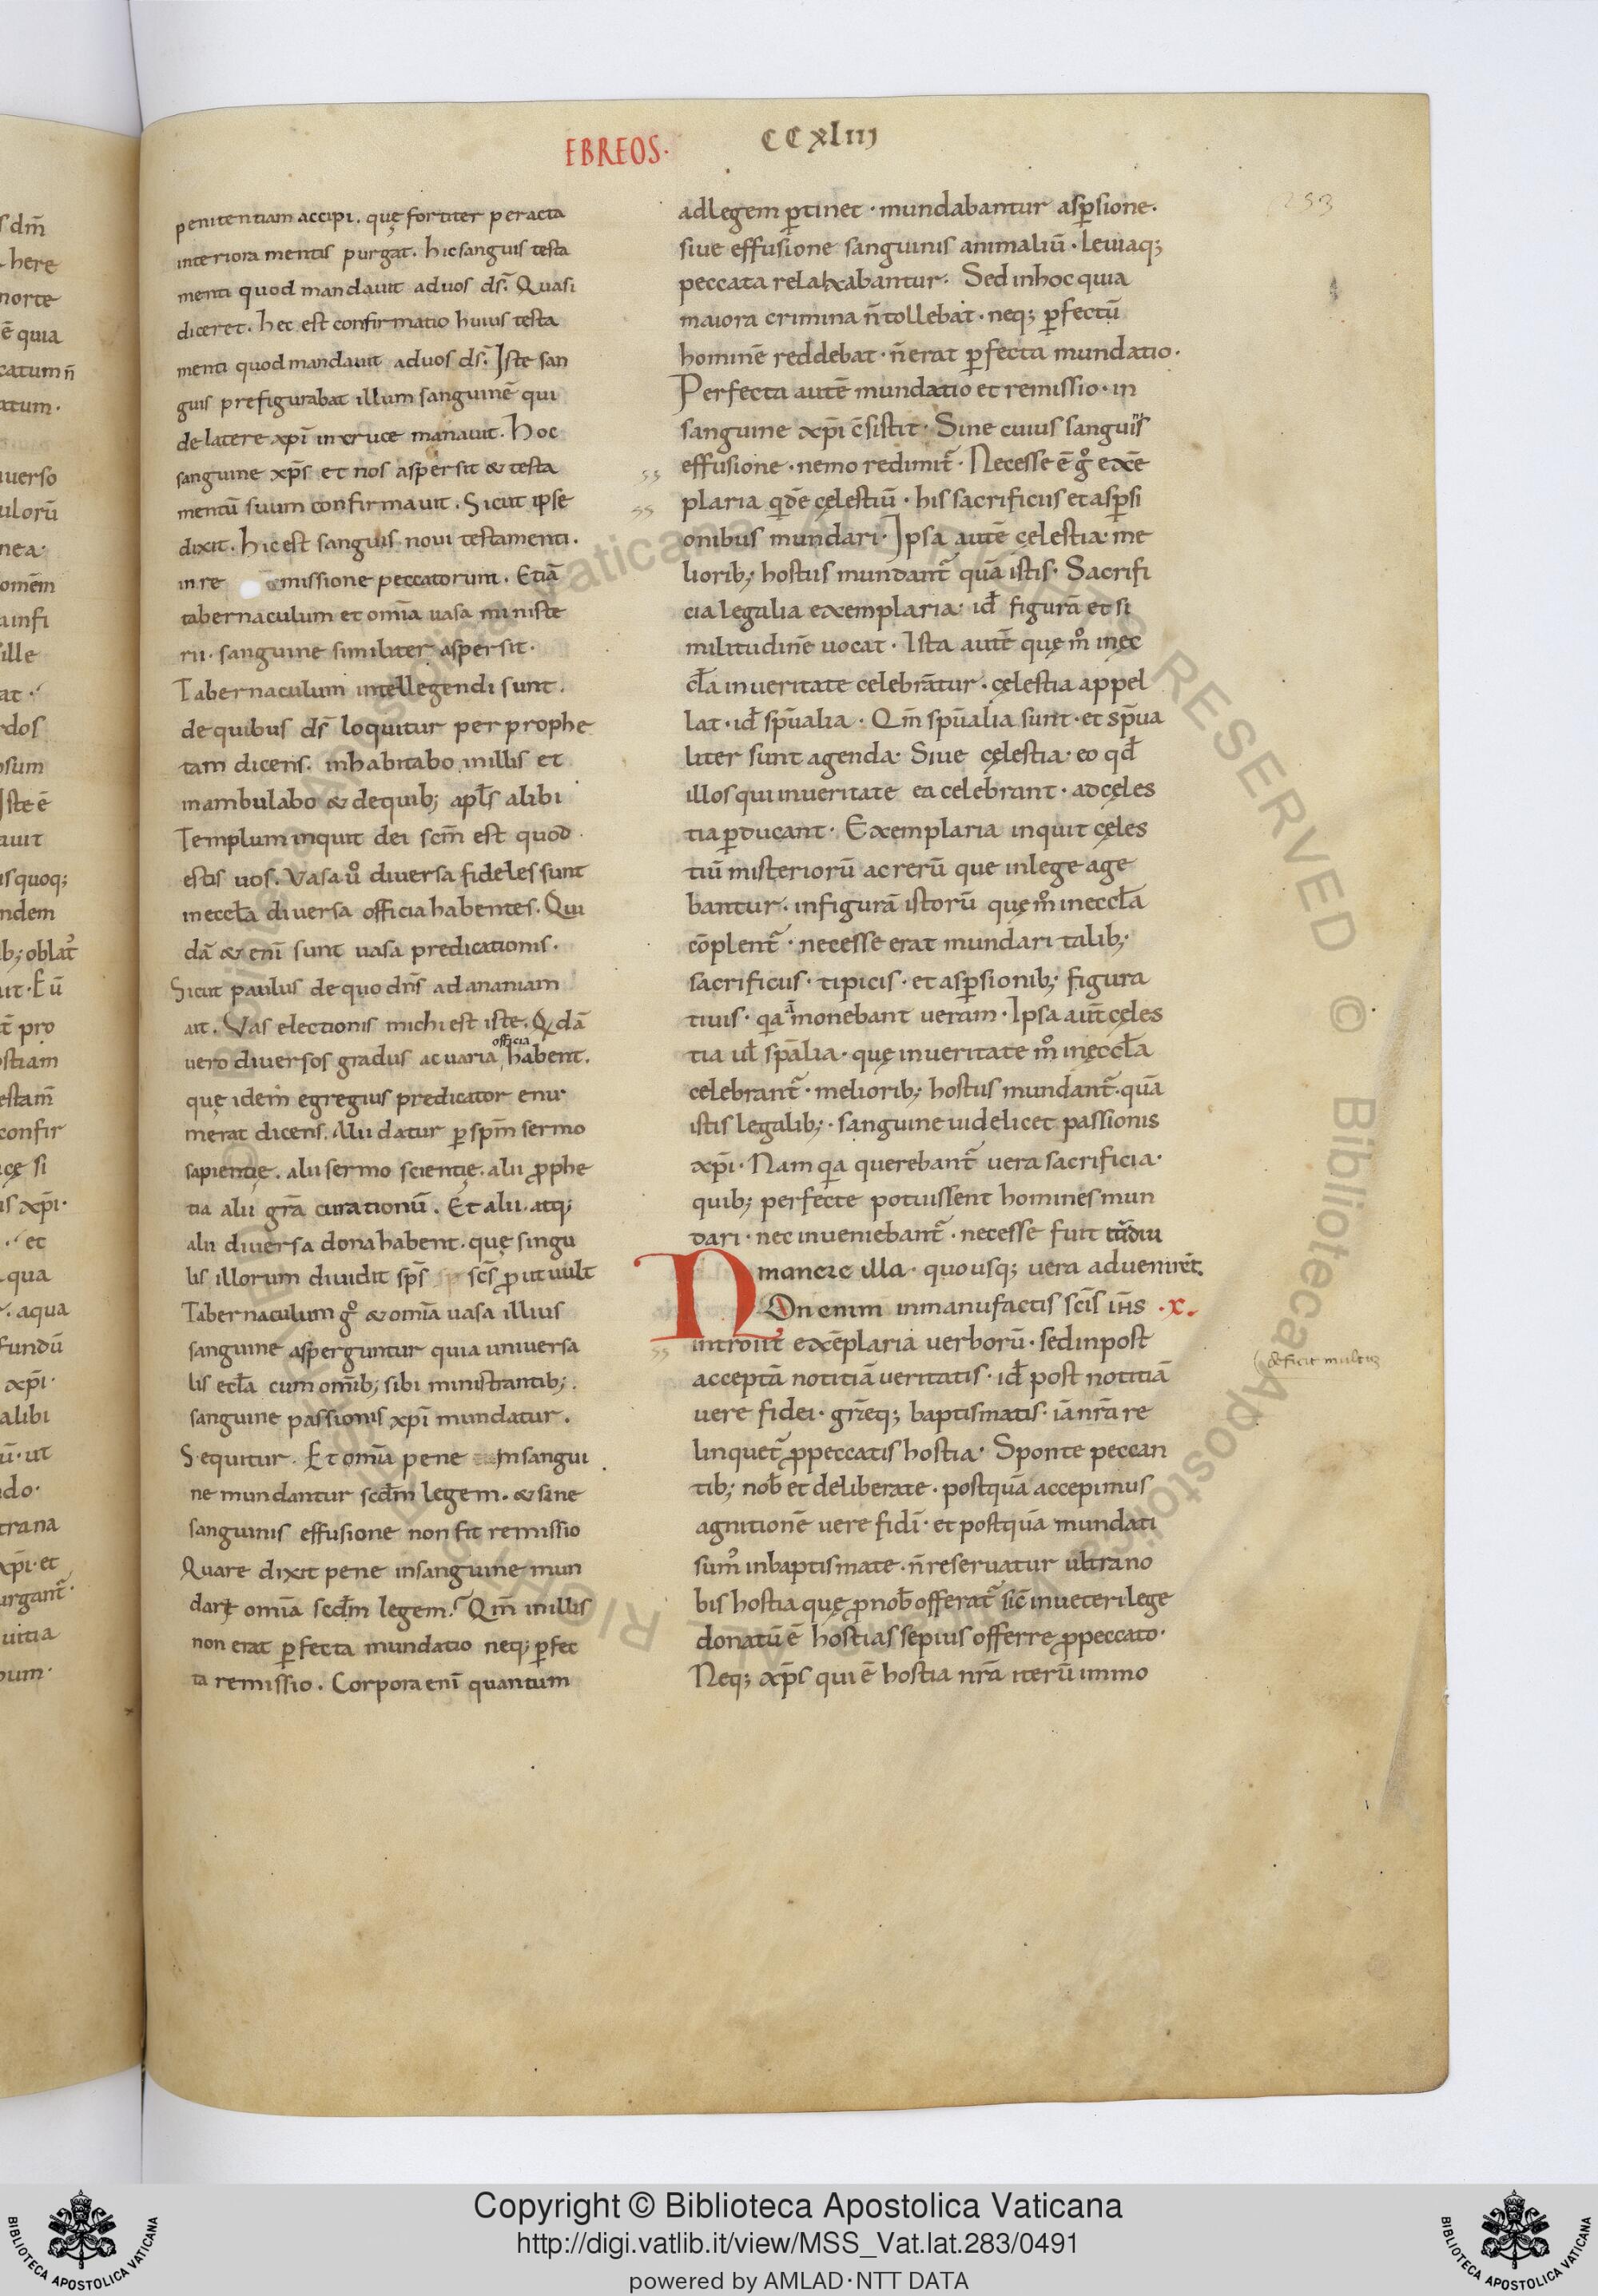 EBREOS·
CCXLIII
253
penitentiam accipi. quę fortiter peracta
interiora mentis purgat. hic sanguis testa
menti quod mandauit ad uos ds̄. Quasi
diceret. hec est confirmatio huius testa
menti quod mandauit ad uos ds̄. Iste san
guis prefigurabat illum sanguinē qui
de latere xp̄i in cruce manauit. Hoc
sanguine xp̄s et nos aspersit & testa
mentū suum confirmauit. Sicut ipse
dixit. hic est sanguis noui testamenti.
in re missione peccatorum. Etiā
tabernaculum et om̄ia uasa ministe
rii. sanguine similiter aspersit.
Tabernaculum intellegendi sunt.
de quibus ds̄ loquitur per prophe
tam dicens. inhabitabo in illis et
inambulabo & de quib; apl̄s alibi
Templum inquit dei scm̄ est quod
estis uos. Vasa uº diuersa fideles sunt
in eccl̄a diuersa officia habentes. Qui
dā & enī sunt uasa predicationis.
Sicut paulus de quo dn̄s ad ananiam
ait. Vas electionis michi est iste. Qdā
uero diuersos gradus ac uaria officia habent.
quę idem egregius predicator enu
merat dicens. Alii datur ꝑ sp̄m sermo
sapientię. alii sermo scientię. alii ꝓphe
tia alii gr̄a curationū. Et alii atq;
alii diuersa dona habent. quę singu
lis illorum diuidit sp̄s sc̄s ꝓut uult
Tabernaculum gº & om̄ia uasa illius
sanguine asperguntur quia uniuersa
lis ecl̄a cum om̄ib; sibi ministrantib;.
sanguine passionis xp̄i mundatur.
Sequitur. Et om̄ia pene in sangui
ne mundantur scd̄m legem. & sine
sanguinis effusione non fit remissio
Quare dixit pene in sanguine mun
dari om̄ia scd̄m legem. Qm̄ in illis
non erat ꝑfecta mundatio neq; ꝑfec
ta remissio. Corpora enī quantum
ad legem ꝑtinet · mundabantur asꝑsione.
siue effusione sanguinis animaliū · Leuiaq;
peccata relaxabantur. Sed in hoc quia
maiora crimina n̄ tollebat · neq; ꝑfectū
hominē reddebat · n̄ erat ꝑfecta mundatio.
Perfecta autē mundatio et remissio · in
sanguine xp̄i c̄sistit · Sine cuius sanguinis
effusione · nemo redimit̃ · Necesse ē gº exē
plaria qidē cęlestiū · his sacrificiis et asꝑsi
onibus mundari · Ipsa autē cęlestia · me
liorib; hostiis mundant̃ quā istis · Sacrifi
cia legalia exemplaria · id̄ figurā et si
militudinē uocat · Ista autē quę mº in ęc
cl̄a in ueritate celebrātur · cęlestia appel
lat · id̄ sp̄ualia · Qm̄ sp̄ualia sunt · et sp̄ua
liter sunt agenda · Siue cęlestia · eo qd̄
illos qui in ueritate ea celebrant · ad cęles
tia ꝑducant · Exemplaria inquit cęles
tiū misteriorū ac rerū que in lege age
bantur · in figurā istorū quę mº in eccl̄a
cōplent̃ · necesse erat mundari talib;
sacrificiis · tipicis · et asꝑsionib; figura
tiuis · qia monebant ueram · Ipsa aut̄ cęles
tia ul̄ sp̄alia · quę in ueritate mº in ęccl̄a
celebrant̃ · meliorib; hostiis mundant̃ · quā
istis legalib; · sanguine uidelicet passionis
xp̄i · Nam qia querebant̃ uera sacrificia ·
quib; perfecte potuissent homines mun
dari · nec inueniebant̃ · necesse fuit tādiu
manere illa · quousq; uera aduenirēt.
NOn enim in manufactis sc̄is ih̄s ·X·
introiit exēplaria uerborū · sed in post
acceptā notitiā ueritatis · id̄ post notitiā
uere fidei · gr̄eq; baptismatis · iā nr̄a re
linquet̃ ꝓ peccatis hostia · Sponte peccan
tib; nob̄ et deliberate · postquā accepimus
agnitionē uere fidī · et postquā mundati
sum᾽ in baptismate · n̄ reseruatur ultra no
bis hostia quę ꝓ nob̄ offerat̃ sic̄ in ueteri lege
donatū ē hostias sepius offerre ꝓ peccato ·
Neq; xp̄s qui ē hostia nr̄a iterū immo
deficit multum
Copyright © Biblioteca Apostolica Vaticana
http://digi.vatlib.it/view/MSS_Vat.lat.283/0491
powered by AMLAD·NTT DATA
BIBLIOTECA APOSTOLICA VATICANA
BIBLIOTECA APOSTOLICA VATICANA